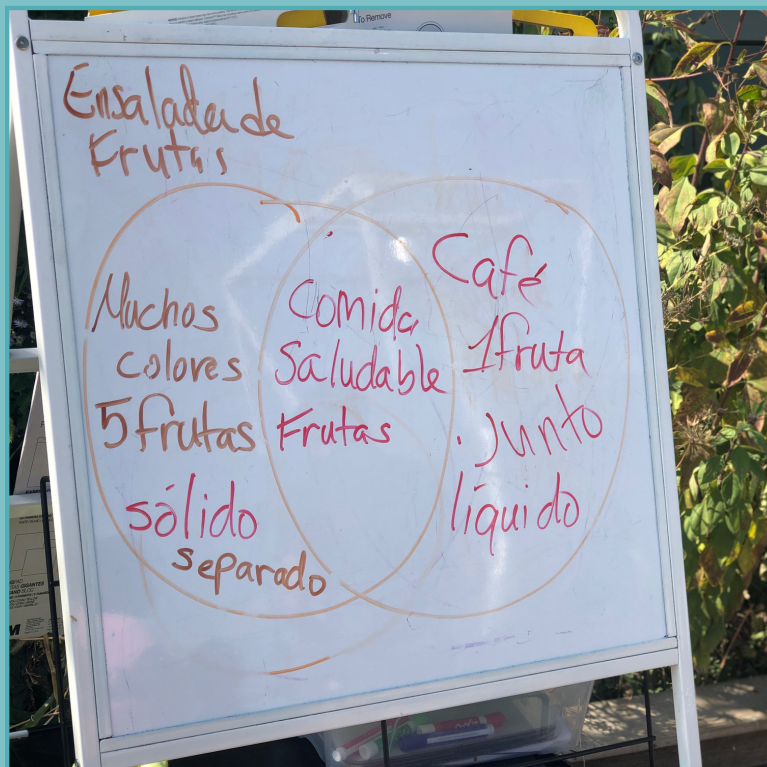 To Remove
Ensalada de
Frutas
Muchos
colores
5 frutas
sólido
separado
Comida
Saludable
Frutas
Café
1 fruta
Junto
líquido
GIGANTES
M